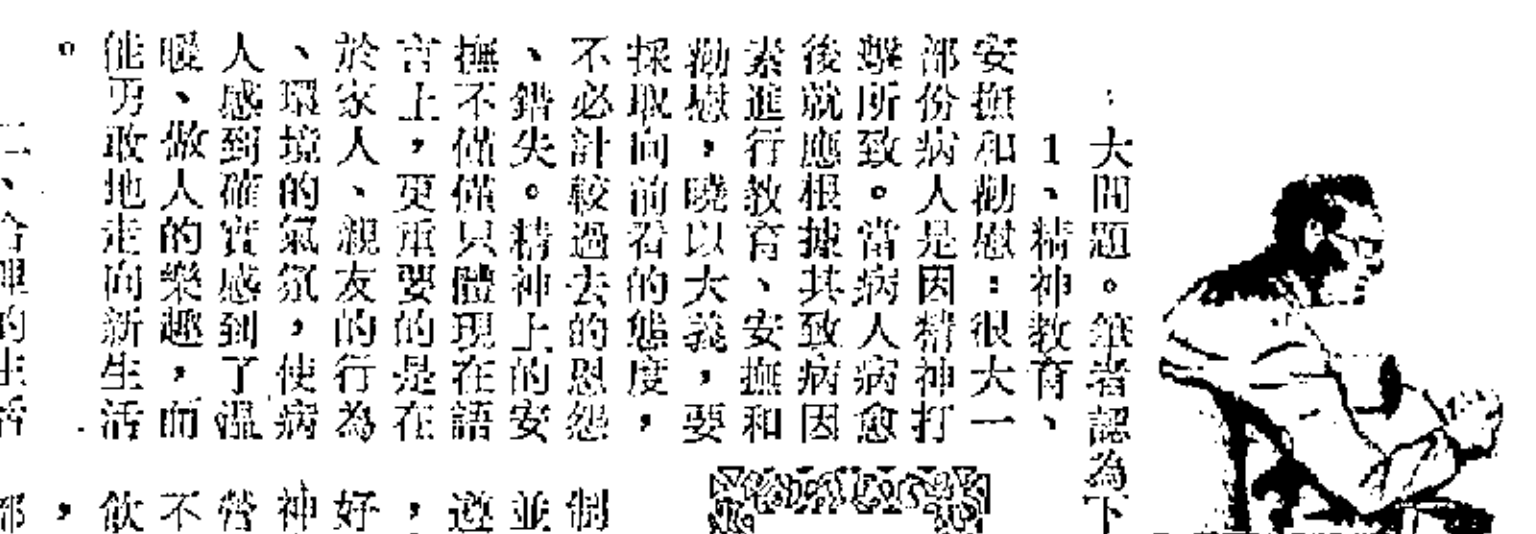 ：大問題。筆者認為下
1、精神教育、
安撫和勸慰：很大一
部份病人是因精神打
擊所致。當病人病愈
後就應根據其致病因
素進行教育、安撫和
勸慰，曉以大義，要
採取向前看的態度，
不必計較過去的恩怨
、錯失。精神上的安
撫不僅僅只體現在語
言上，更重要的是在
於家人、親友的行為
、環境的氣氛，使病
人感到確實感到了溫
暖、做人的樂趣，而
能勇敢地走向新生活
。
二、合理的生活
制
並
遵
，
好
神
營
不
飲
，
都